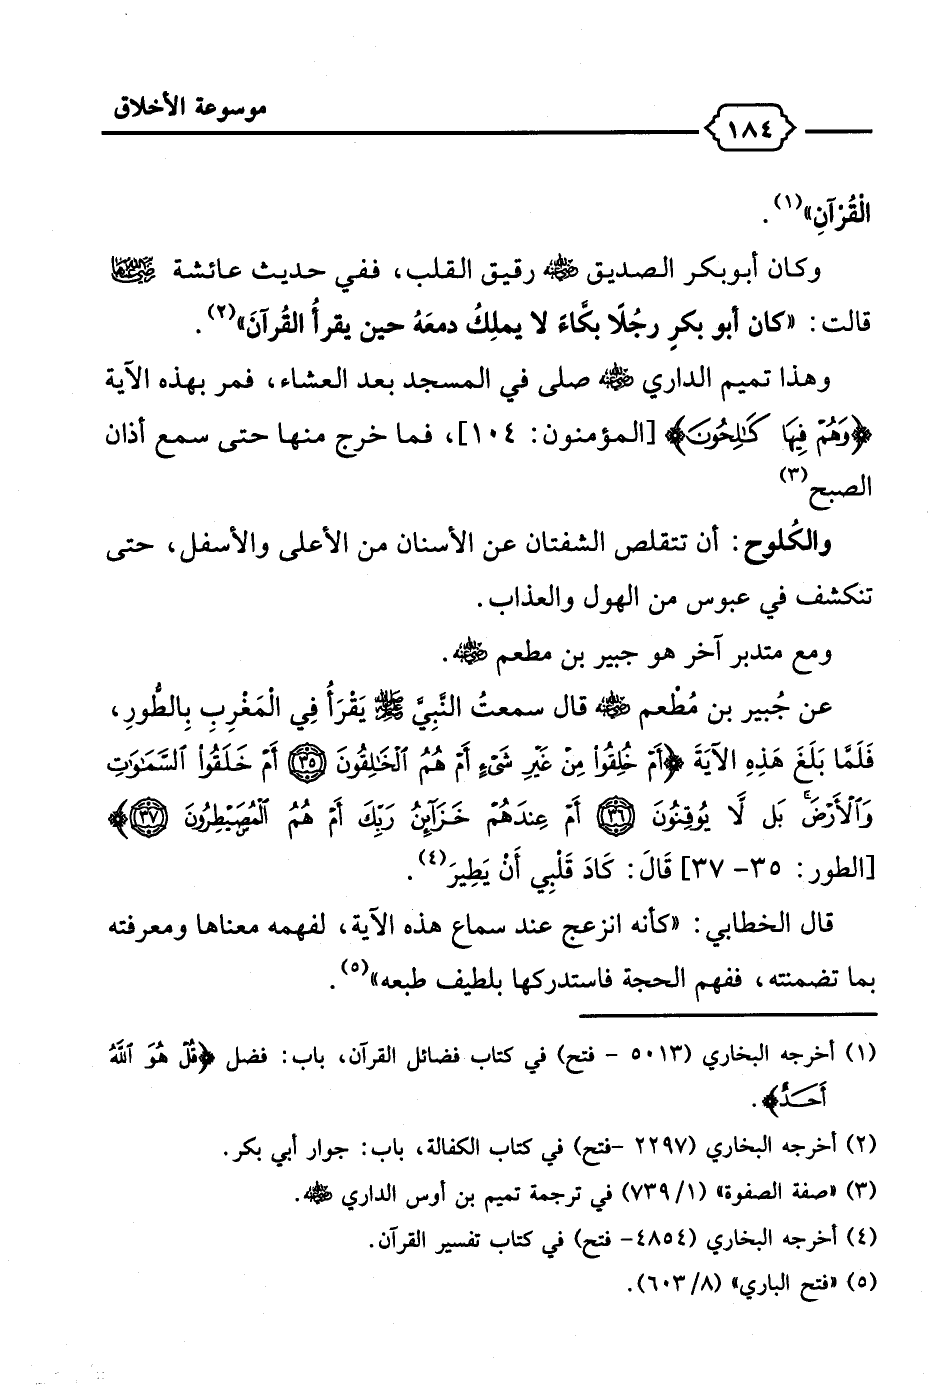 موسوعة الأخلاق
١٨٤
الْقُرْآنِ»(١).
وكان أبوبكر الصديق رضي الله عنه رقيق القلب، ففي حديث عائشة رضي الله عنها
قالت: «كان أبو بكرٍ رجُلًا بكَّاءً لا يملِكُ دمعَهُ حين يقرأُ القُرآنَ»(٢).
وهذا تميم الداري رضي الله عنه صلى في المسجد بعد العشاء، فمر بهذه الآية
﴿وَهُمْ فِيهَا كَـٰلِحُونَ﴾ [المؤمنون: ١٠٤]، فما خرج منها حتى سمع أذان
الصبح(٣)
والكُلوح: أن تتقلص الشفتان عن الأسنان من الأعلى والأسفل، حتى
تنكشف في عبوس من الهول والعذاب.
ومع متدبر آخر هو جبير بن مطعم رضي الله عنه.
عن جُبير بن مُطْعم رضي الله عنه قال سمعتُ النَّبِيَّ ﷺ يَقْرَأُ فِي الْمَغْرِبِ بِالطُّورِ،
فَلَمَّا بَلَغَ هَذِهِ الآيَةَ ﴿أَمْ خُلِقُوا۟ مِنْ غَيْرِ شَىْءٍ أَمْ هُمُ ٱلْخَـٰلِقُونَ ٣٥ أَمْ خَلَقُوا۟ ٱلسَّمَـٰوَٰتِ
وَٱلْأَرْضَ ۚ بَل لَّا يُوقِنُونَ ٣٦ أَمْ عِندَهُمْ خَزَآئِنُ رَبِّكَ أَمْ هُمُ ٱلْمُصَۣيْطِرُونَ ٣٧﴾
[الطور: ٣٥- ٣٧] قَالَ: كَادَ قَلْبِي أَنْ يَطِيرَ(٤).
قال الخطابي: «كأنه انزعج عند سماع هذه الآية، لفهمه معناها ومعرفته
بما تضمنته، ففهم الحجة فاستدركها بلطيف طبعه»(٥).
(١) أخرجه البخاري (٥٠١٣ - فتح) في كتاب فضائل القرآن، باب: فضل ﴿قُلْ هُوَ ٱللَّهُ
أَحَدٌ﴾.
(٢) أخرجه البخاري (٢٢٩٧ -فتح) في كتاب الكفالة، باب: جوار أبي بكر.
(٣) «صفة الصفوة» (١/ ٧٣٩) في ترجمة تميم بن أوس الداري رضي الله عنه.
(٤) أخرجه البخاري (٤٨٥٤- فتح) في كتاب تفسير القرآن.
(٥) «فتح الباري» (٨/ ٦٠٣).